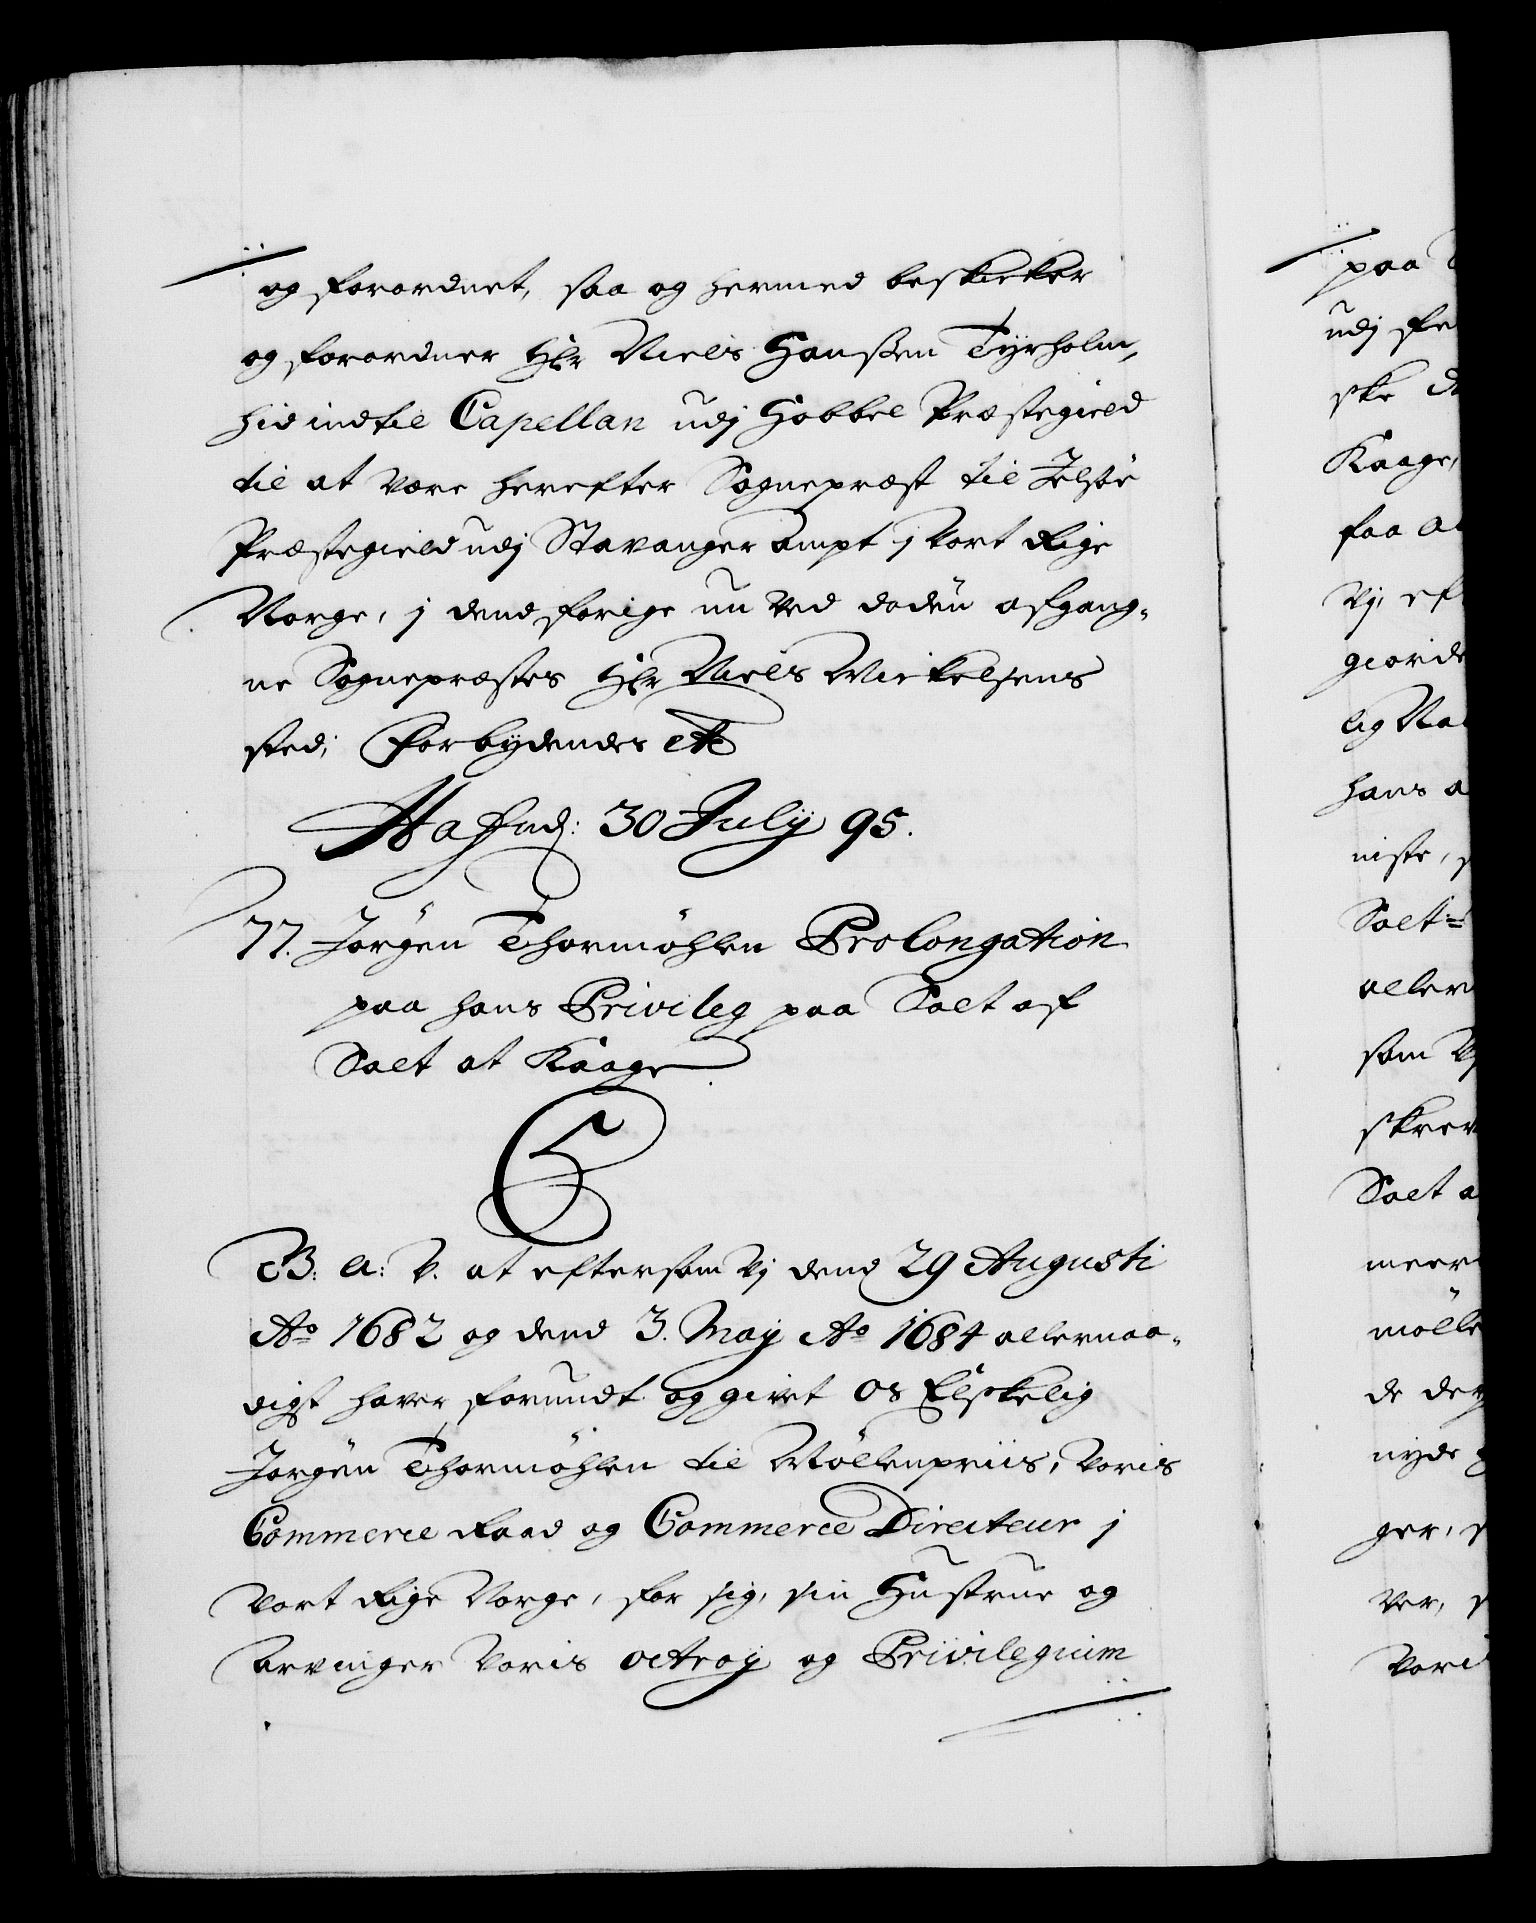 og forordnet, saa og hermed beskicker
og forordner Hr Niels Hanßen Tyrholm,
hid indtil Capellan udj Hobbel Præstegield
til at være herefter Sognepræst til Jelsöe
Præstegield udj Stavanger Ampt j Vort Rige
Norge, j dend forige nu ved döden afgang-
ne Sognepræstes Hr Niels Mickelsens
sted; Forbydendes etc
Hafnd: 30 July 95.
77. Jörgen Thormöhlen Prolongation
paa hans Privileg paa Salt af
Salt at Kaage
C5
G: A: V. at eftersom Vj dend 29 Augusti
Ao 1682 og dend 3. Maj Ao 1684 allernaa-
digst haver forundt og givet Os Elskelig
Jörgen Thormöhlen til Möllenpriis, Voris
Commerce Raad og Commerce Directeur j
Vort Rige Norge, for sig, sin Hustrue og
Arvinger Voris octroy og Privilegium
paa
udj
ske
Kaage,
faa
Vj, ef
giorde
lig Na
hans a
niste,
Salt-
aller
som V
skrev
Salt a
meer
mölle
de der
nyde
ger,
ver,
Vori